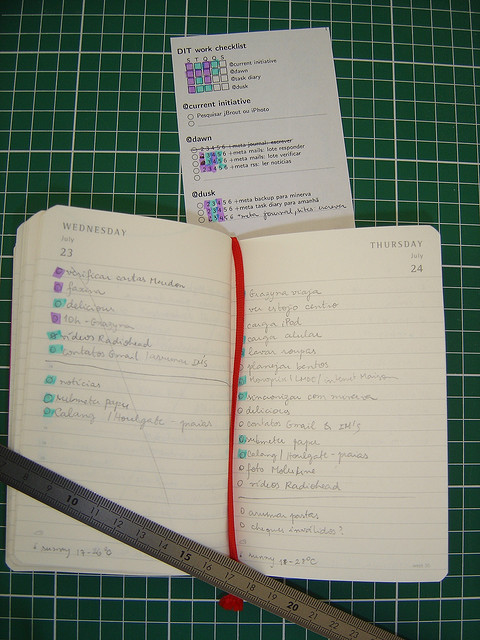 DIT work checklist
S T Q Q S
@current initiative
@dawn
@task diary
@dusk
@current initiative
Pesquisar jBrout ou iPhoto
@dawn
2 3 4 5 6 +meta journal: escrever
3 4 5 6 +meta mails: lote responder
4 5 6 +meta mails: lote verificar
2 3 4 5 6 +meta rss: ler notícias
@dusk
2 3 4 5 6 +meta backup para minerva
2 3 4 5 6 +meta task diary para amanhã
4 5 6 +meta journal, sites:
WEDNESDAY
July
23
verificar cartas
faxina
delicious
10h - Grazyna
vídeos Radiohead
contatos Gmail
notícias
submeter paper
Calang / Howlgate - praias
sunny 13-26°C
THURSDAY
July
24
Grazyna viaja
ver estojo centro
carga iPod
carga celular
lavar roupas
planejar bentos
sincronizar com minerva
delicious
contatos Gmail &
submeter paper
Calang / Howlgate - praias
foto
vídeos Radiohead
arrumar pastas
cheques inválidos?
sunny 18-27°C
10 11 12 13 14 15 16 17 18 19 20 21 22 23